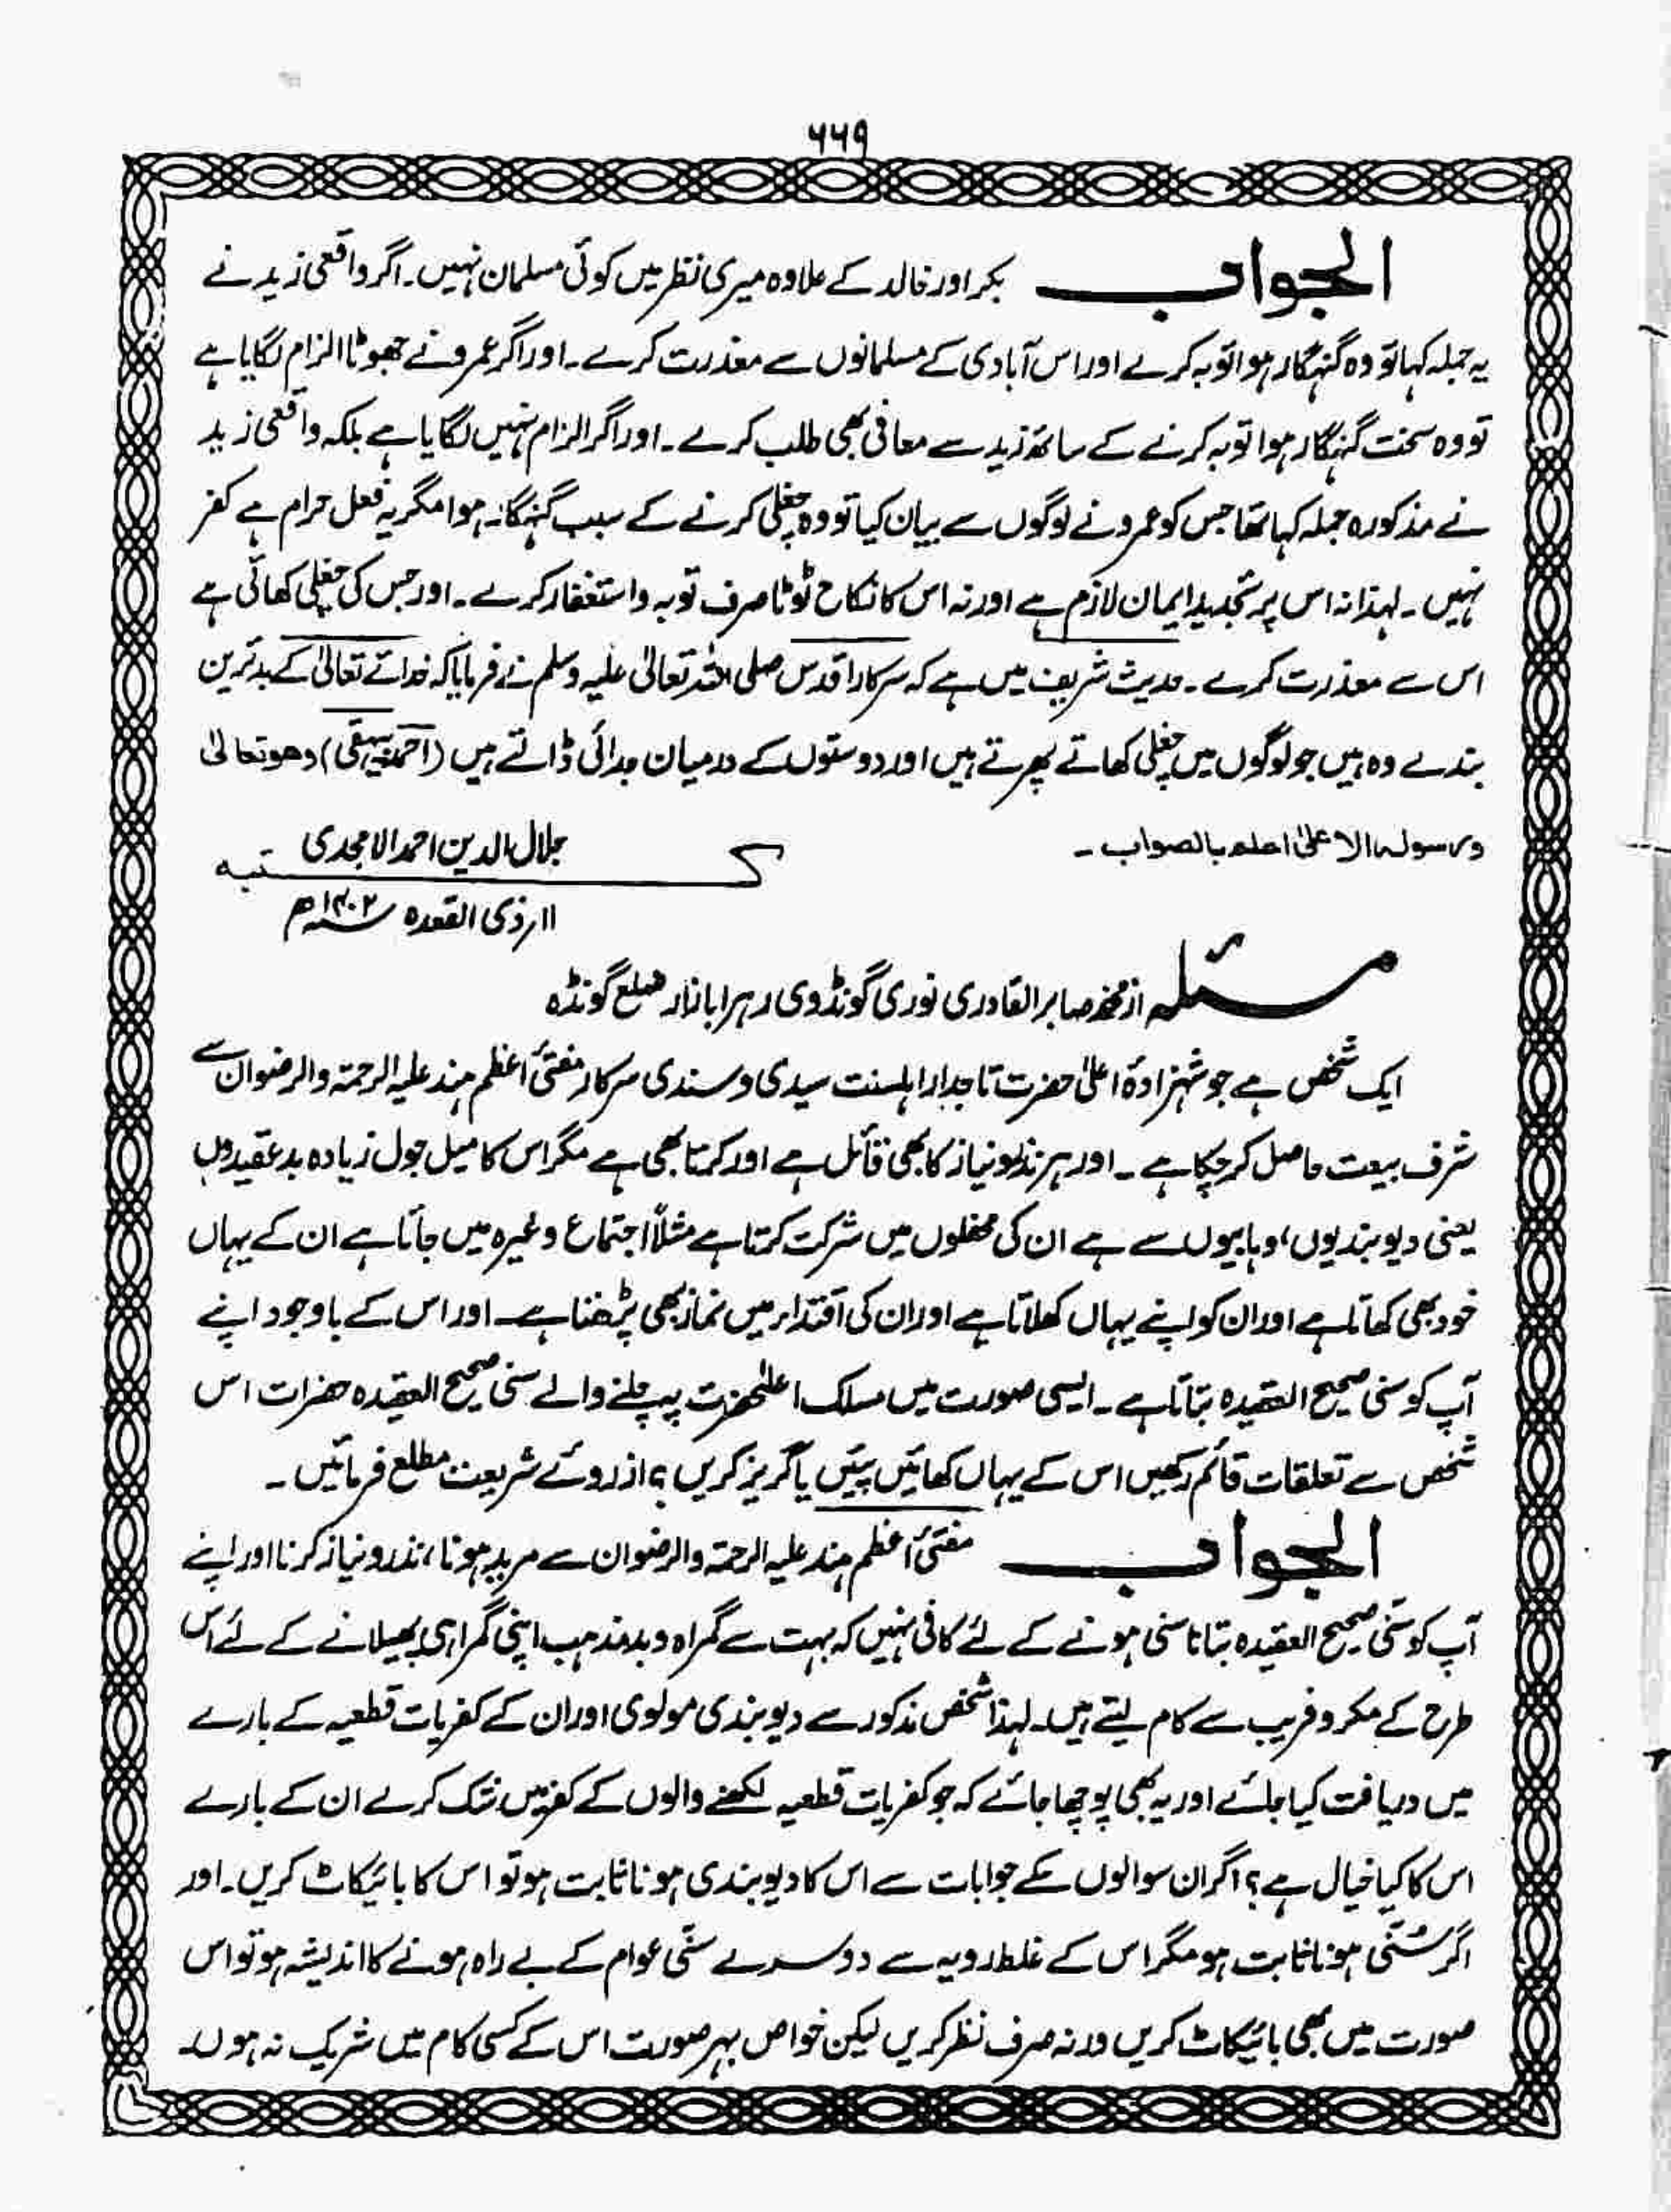 ۶۶۹
الجواب بکر اور خالد کے علاوہ میری نظر میں کوئی مسلمان نہیں۔ اگر واقعی زید نے
یہ جملہ کہا تو وہ گنہگار ہوا توبہ کرے اور اس آبادی کے مسلمانوں سے معذرت کرے۔ اور اگر عمرو نے جھوٹا الزام لگایا ہے
تو وہ سخت گنہگار ہوا توبہ کرنے کے ساتھ زید سے معافی بھی طلب کرے۔ اور اگر الزام نہیں لگایا ہے بلکہ واقعی زید
نے مذکورہ جملہ کہا تھا جس کو عمرو نے لوگوں سے بیان کیا تو وہ چغلی کرنے کے سبب گنہگار ہوا مگر یہ فعل حرام ہے کفر
نہیں۔ لہذا نہ اس پر تجدید ایمان لازم ہے اور نہ اس کا نکاح ٹوٹا صرف توبہ و استغفار کرے۔ اور جس کی چغلی کھائی ہے
اس سے معذرت کرے۔ حدیث شریف میں ہے کہ سرکار اقدس صلی اللہ تعالیٰ علیہ وسلم نے فرمایا کہ خدائے تعالیٰ کے بدترین
بندے وہ ہیں جو لوگوں میں چغلی کھاتے پھرتے ہیں اور دوستوں کے درمیان جدائی ڈالتے ہیں (احمد بیہقی) وھو تعالیٰ
ورسولہ الاعلیٰ اعلم بالصواب۔
جلال الدین احمد الامجدی
کتبہ
۱۱؍ ذی القعدہ ۱۴۰۲ھ
مسئلہ از محمد صابر القادری نوری گونڈوی رہرا بازار ضلع گونڈہ
ایک شخص ہے جو شہزادۂ اعلیٰ حضرت تاجدار اہلسنت سیدی و سندی سرکار مفتیٔ اعظم ہند علیہ الرحمۃ والرضوان سے
شرف بیعت حاصل کر چکا ہے۔ اور ہر نذر و نیاز کا بھی قائل ہے اور کرتا بھی ہے مگر اس کا میل جول زیادہ بدعقیدوں
یعنی دیوبندیوں، وہابیوں سے ہے ان کی محفلوں میں شرکت کرتا ہے مثلاً اجتماع وغیرہ میں جاتا ہے ان کے یہاں
خود بھی کھاتا ہے اور ان کو اپنے یہاں کھلاتا ہے اور ان کی اقتداء میں نماز بھی پڑھتا ہے۔ اور اس کے باوجود اپنے
آپ کو سنی صحیح العقیدہ بتاتا ہے۔ ایسی صورت میں مسلک اعلیٰحضرت پہ چلنے والے سنی صحیح العقیدہ حضرات اس
شخص سے تعلقات قائم رکھیں اس کے یہاں کھائیں پیئیں یا گریز کریں؟ از روئے شریعت مطلع فرمائیں۔
الجواب مفتیٔ اعظم ہند علیہ الرحمۃ والرضوان سے مرید ہونا، نذر و نیاز کرنا اور اپنے
آپ کو سنّی صحیح العقیدہ بتانا سنی ہونے کے لئے کافی نہیں کہ بہت سے گمراہ و بدمذہب اپنی گمراہی پھیلانے کے لئے اس
طرح کے مکر و فریب سے کام لیتے ہیں۔ لہذا شخص مذکور سے دیوبندی مولوی اور ان کے کفریات قطعیہ کے بارے
میں دریافت کیا جائے اور یہ بھی پوچھا جائے کہ جو کفریات قطعیہ لکھنے والوں کے کفر میں شک کرے ان کے بارے
اس کا کیا خیال ہے؟ اگر ان سوالوں کے جوابات سے اس کا دیوبندی ہونا ثابت ہو تو اس کا بائیکاٹ کریں۔ اور
اگر سُنّی ہونا ثابت ہو مگر اس کے غلط رویہ سے دوسرے سنّی عوام کے بے راہ ہونے کا اندیشہ ہو تو اس
صورت میں بھی بائیکاٹ کریں ورنہ صرف نظر کریں لیکن خواص بہر صورت اس کے کسی کام میں شریک نہ ہوں۔